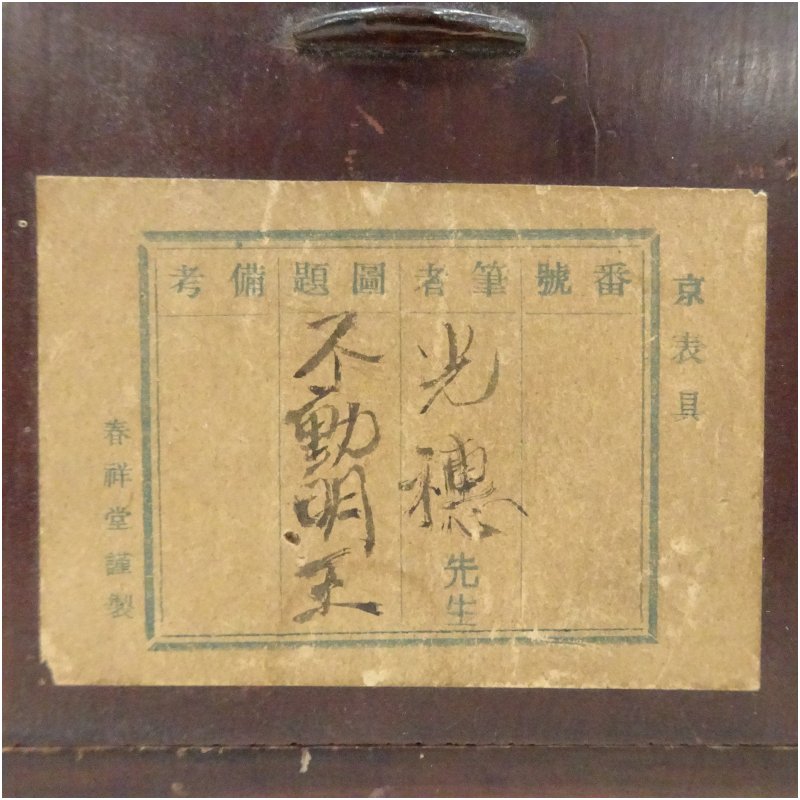 京表具
番號
筆者
光穗先生
圖題
不動明王
備考
春祥堂謹製